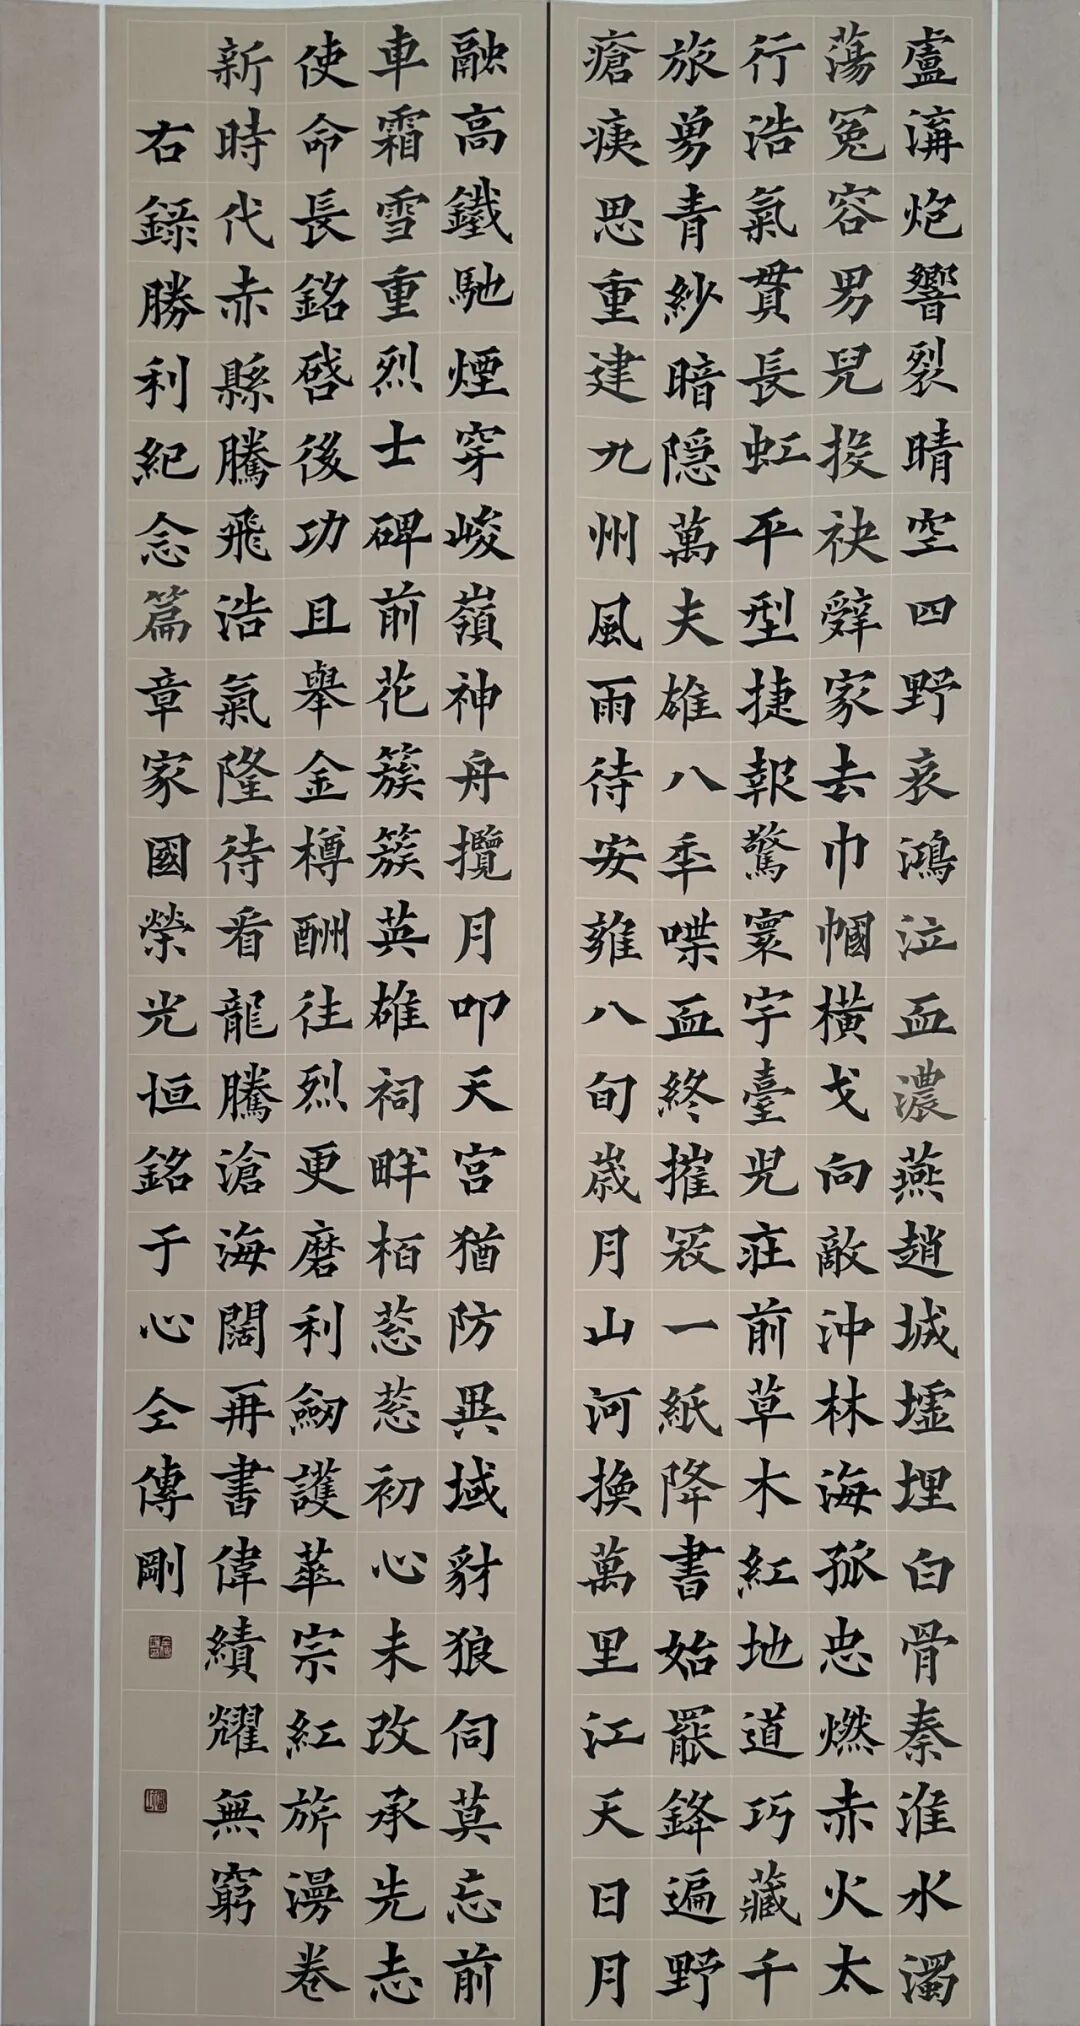 盧溝炮響裂晴空四野哀鴻泣血濃燕趙城墟埋白骨秦淮水濁
蕩寇容男兒投袂辭家去巾幗橫戈向敵沖林海孤忠燃赤火太
行浩氣貫長虹平型捷報驚寰宇臺兒莊前草木紅地道巧藏千
旅勇青紗暗隱萬夫雄八年喋血終摧寇一紙降書始罷鋒遍野
瘡痍思重建九州風雨待安雍八旬歲月山河換萬里江天日月
融高鐵馳煙穿峻嶺神舟攬月叩天宮猶防異域豺狼伺莫忘前
車霜雪重烈士碑前花簇簇英雄祠畔柏蔥蔥初心未改承先志
使命長銘啓後功且舉金樽酬往烈更磨利劍護華宗紅旂漫卷
新時代赤縣騰飛浩氣隆待看龍騰滄海闊再書偉績耀無窮
右錄勝利紀念篇章家國榮光恒銘于心仝傳剛